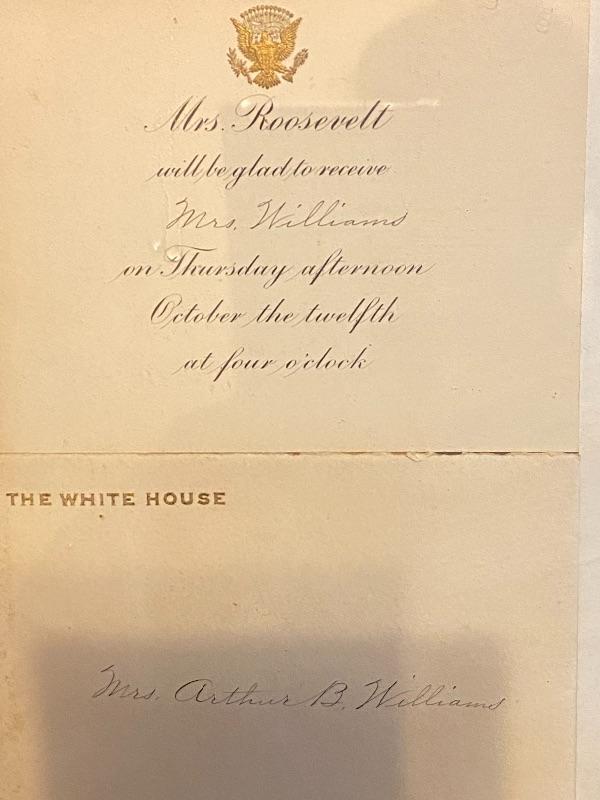 Mrs. Roosevelt
will be glad to receive
Mrs. Williams
on Thursday afternoon
October the twelfth
at four o'clock
THE WHITE HOUSE
Mrs. Arthur B. Williams